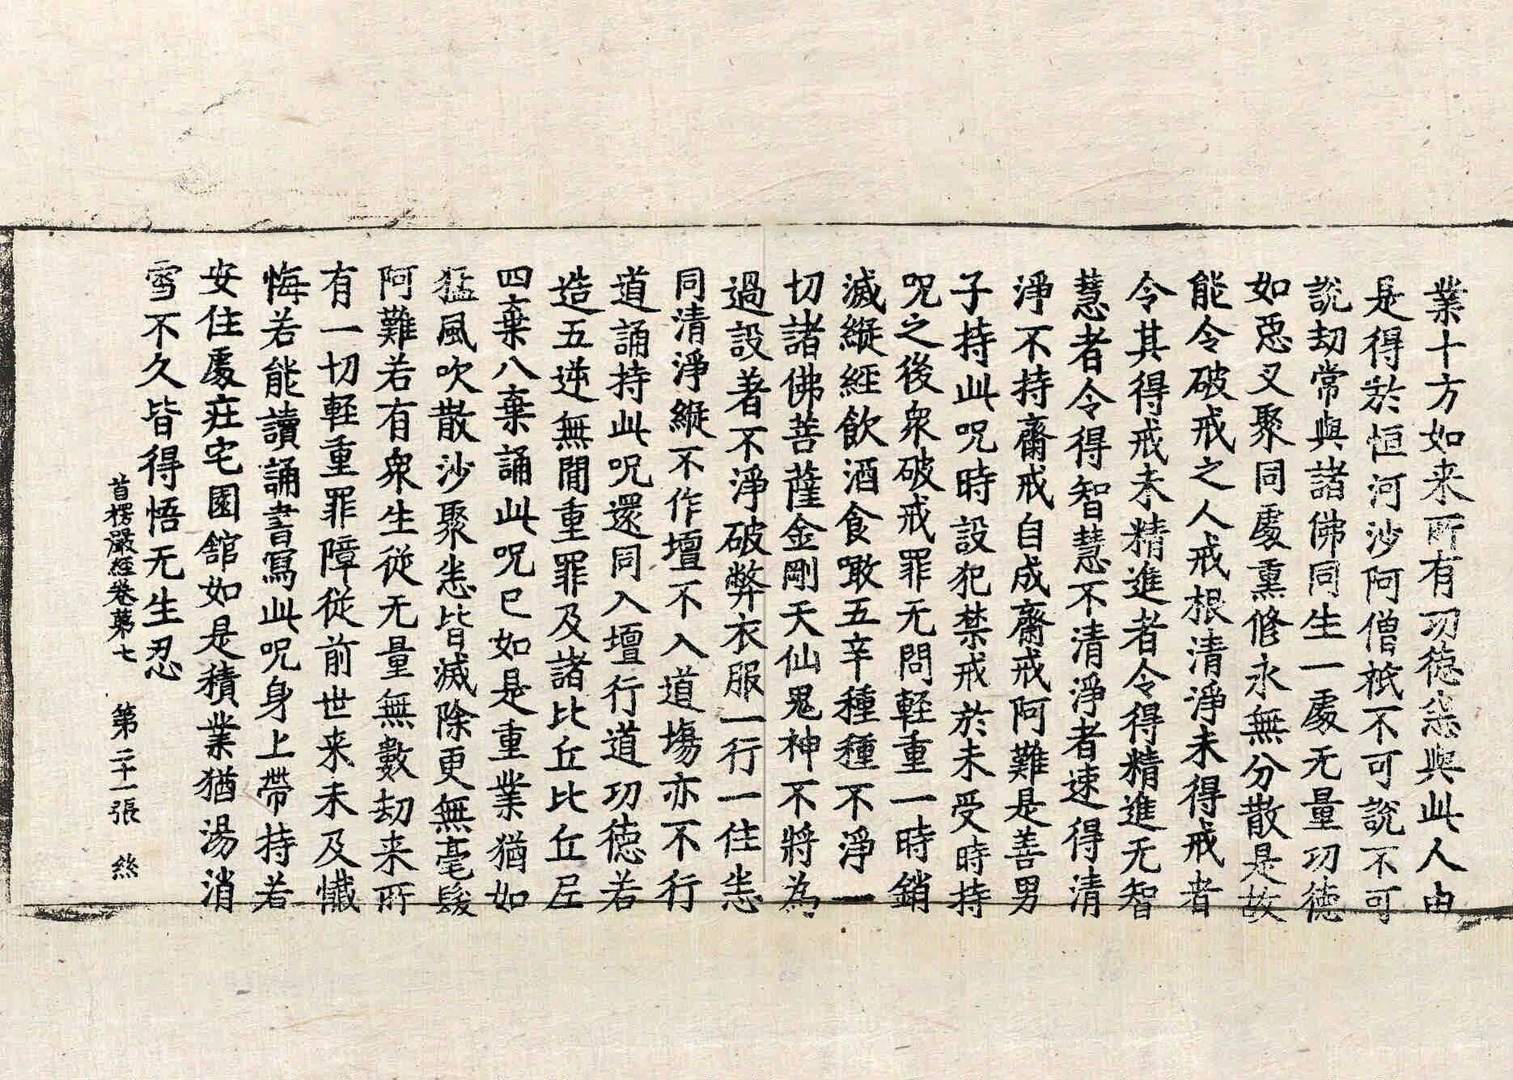 業十方如来所有功德悉與此人由
是得於恒河沙阿僧祇不可說不可
說劫常與諸佛同生一處无量功德
如惡叉聚同處熏修永無分散是故
能令破戒之人戒根清淨未得戒者
令其得戒未精進者令得精進无智
慧者令得智慧不清淨者速得清
淨不持齋戒自成齋戒阿難是善男
子持此呪時設犯禁戒於未受時持
呪之後衆破戒罪无問輕重一時銷
滅縱經飲酒食噉五辛種種不淨一
切諸佛菩薩金剛天仙鬼神不將為
過設著不淨破弊衣服一行一住悉
同清淨縱不作壇不入道場亦不行
道誦持此呪還同入壇行道功德若
造五逆無間重罪及諸比丘比丘尼
四棄八棄誦此呪已如是重業猶如
猛風吹散沙聚悉皆滅除更無毫髮
阿難若有衆生從无量無數劫来所
有一切輕重罪障從前世来未及懺
悔若能讀誦書寫此呪身上帶持若
安住處莊宅園舘如是積業猶湯消
雪不久皆得悟无生忍
首楞嚴経卷苐七 第二十一張 絲